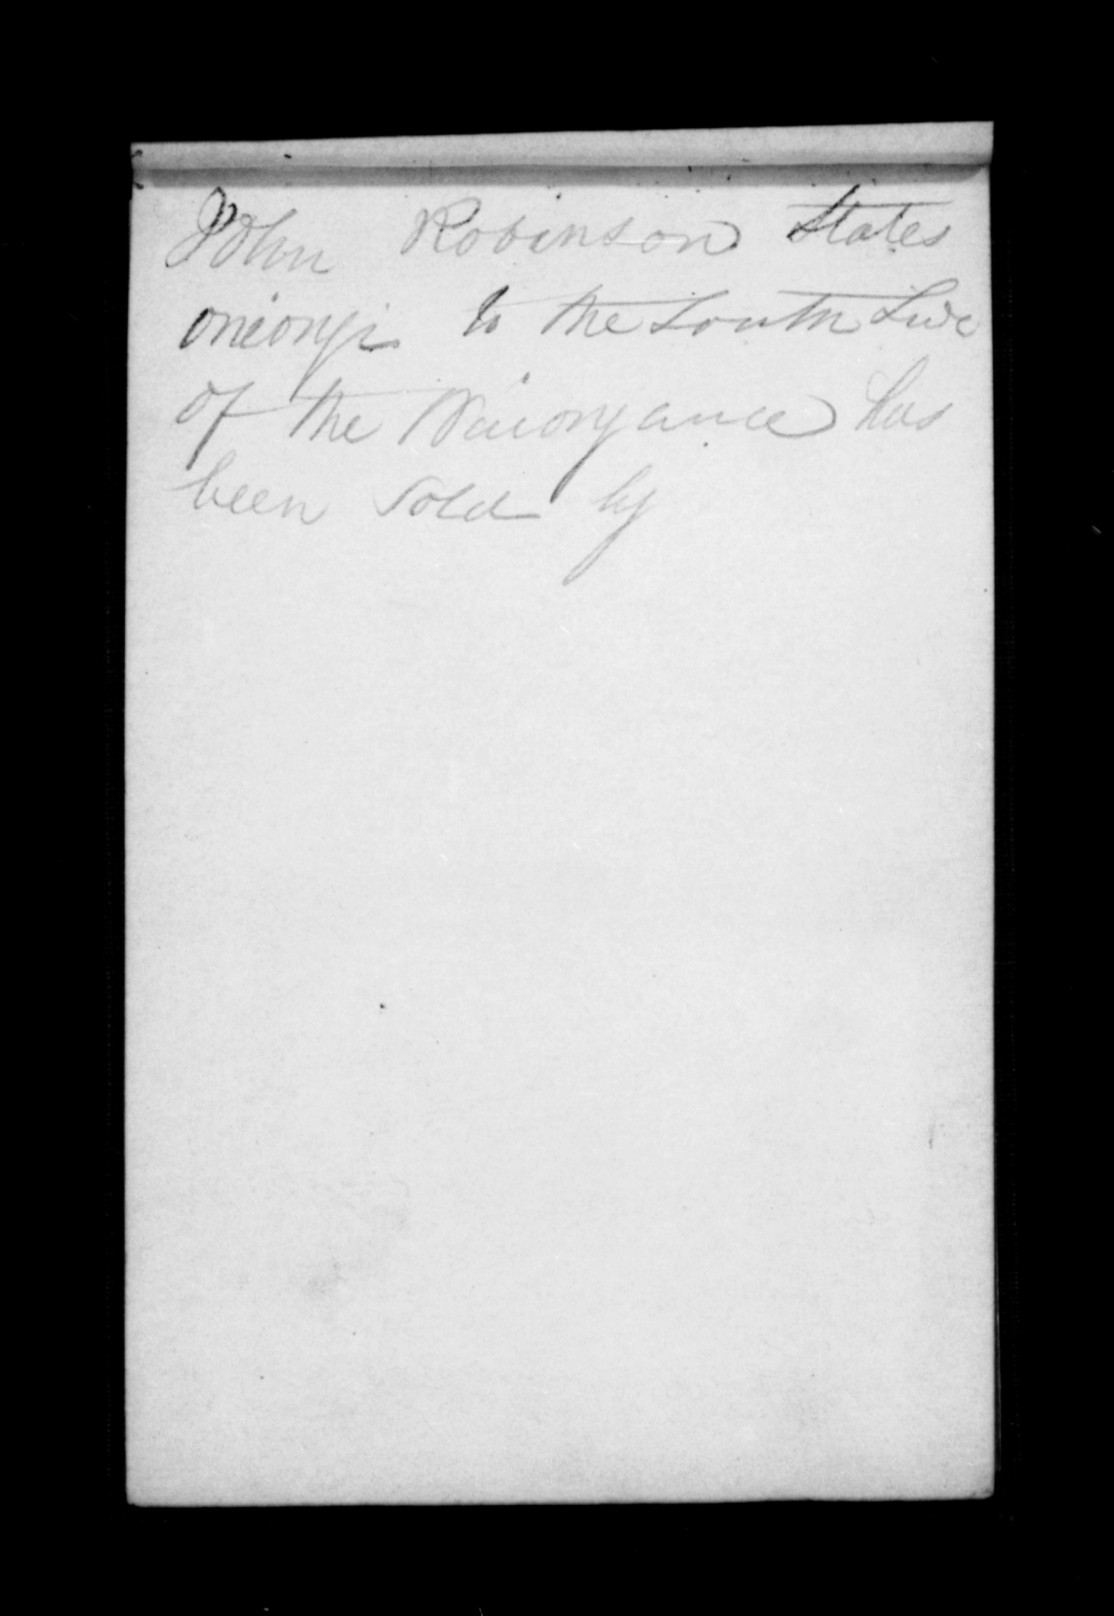 John Robinson States
to the South Side
of the has
been sold by